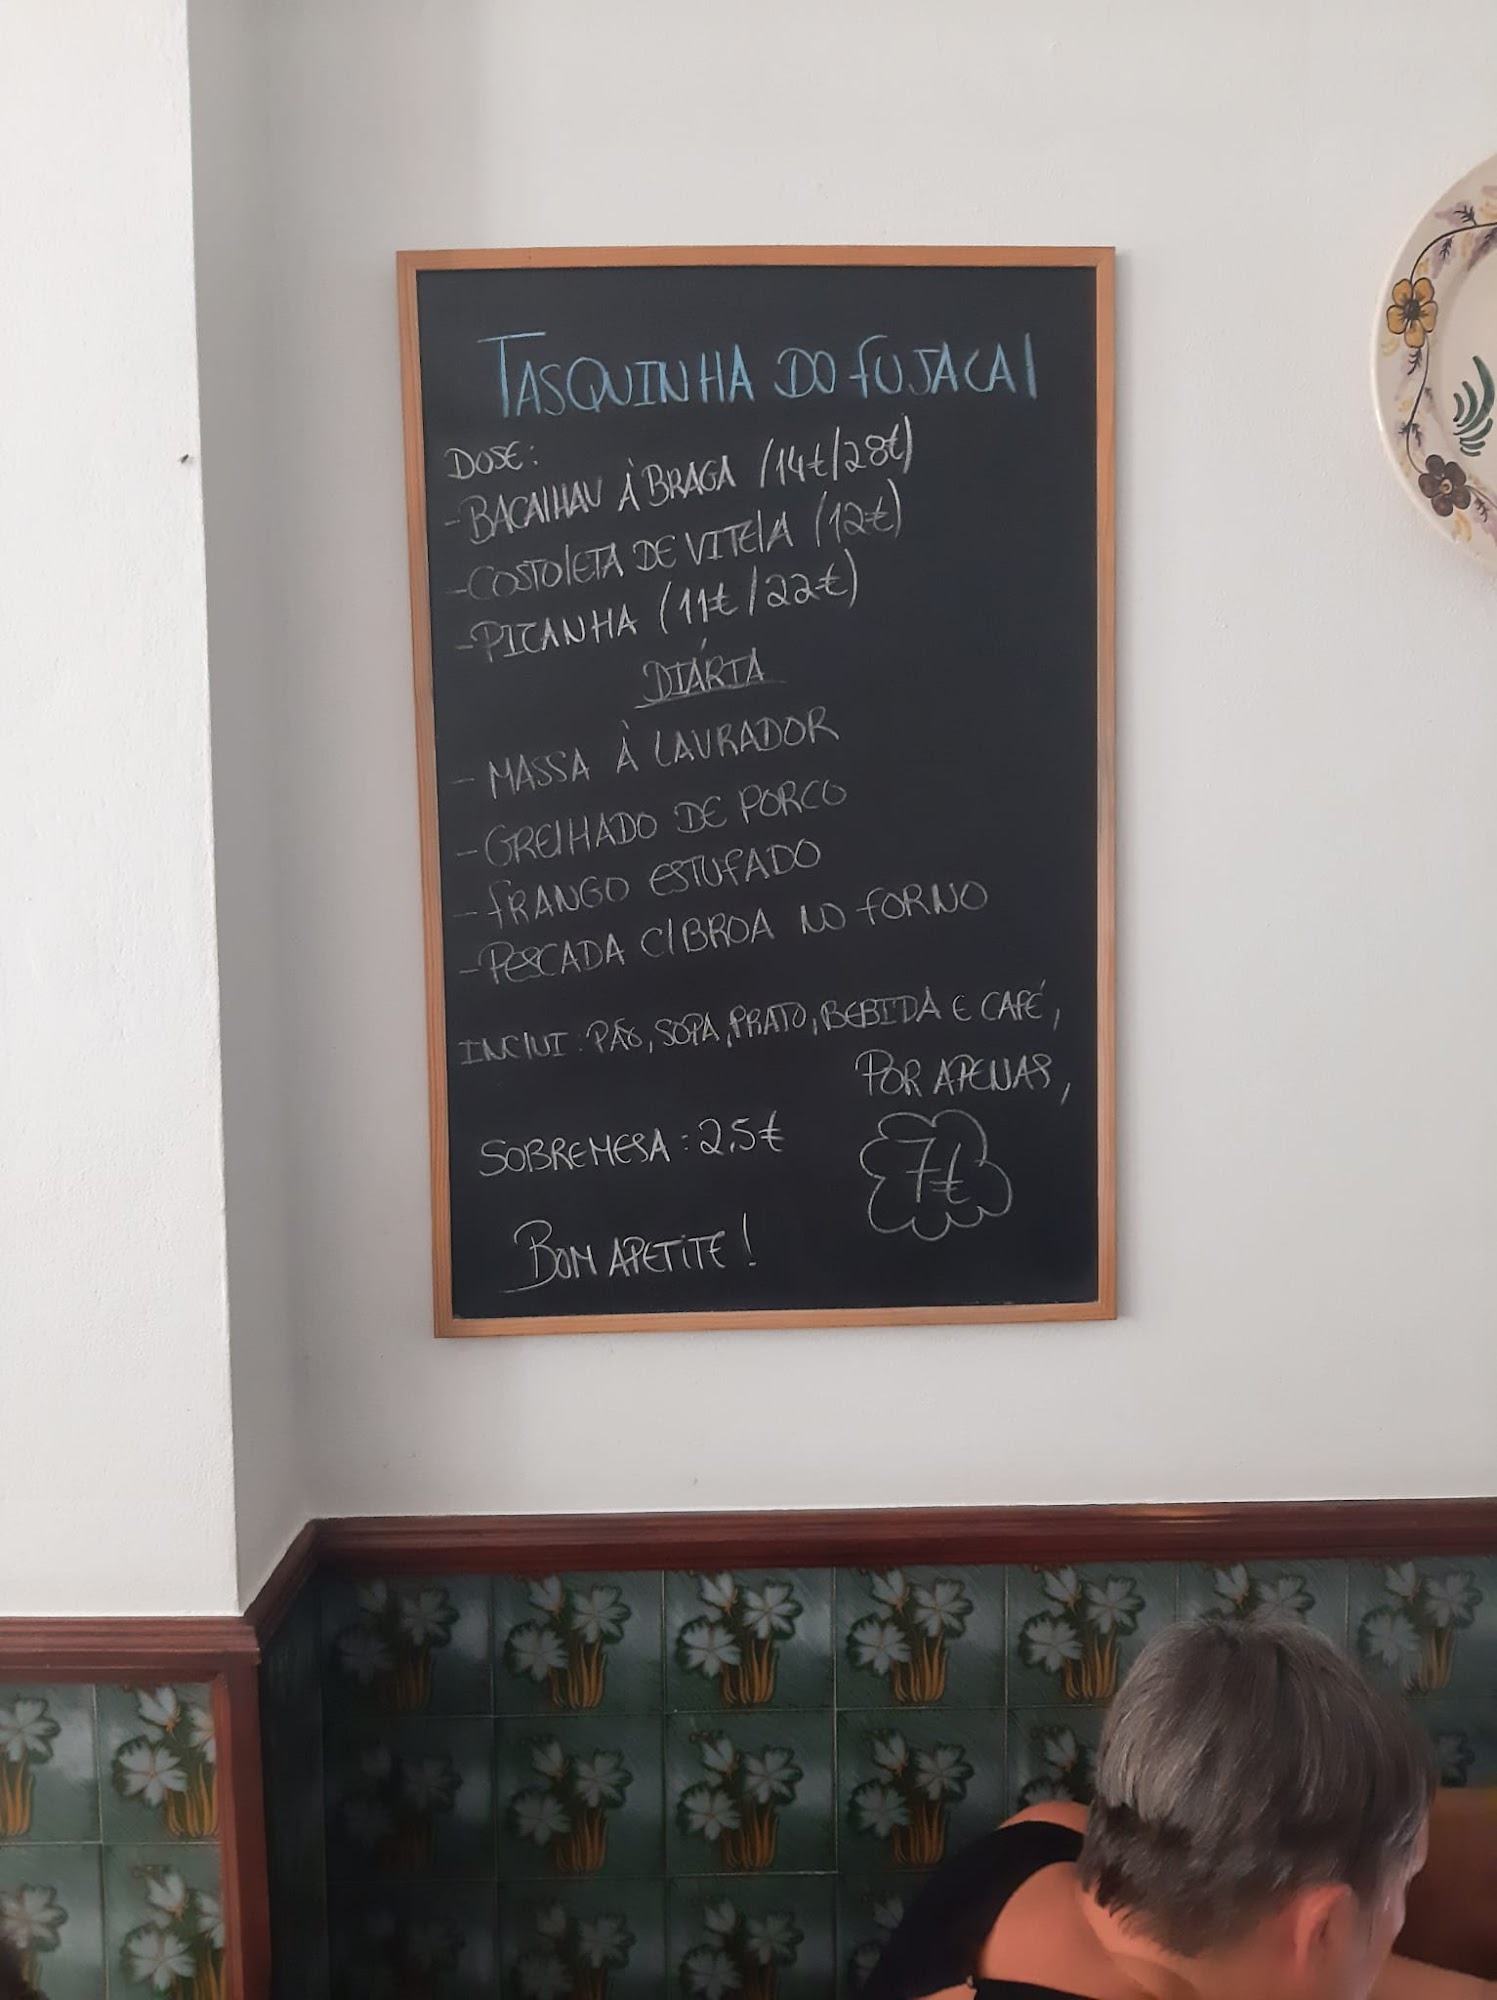 TASQUINHA DO FUJACAL
DOSE:
- BACALHAU À BRAGA (14€/28€)
- COSTOLETA DE VITELA (12€)
- PICANHA (11€/22€)
DIÁRIA
- MASSA À LAVRADOR
- GRELHADO DE PORCO
- FRANGO ESTUFADO
- PESCADA C/BROA NO FORNO
INCLUI: PÃO, SOPA, PRATO, BEBIDA E CAFÉ,
POR APENAS,
SOBREMESA: 2,5€
7€
BOM APETITE!